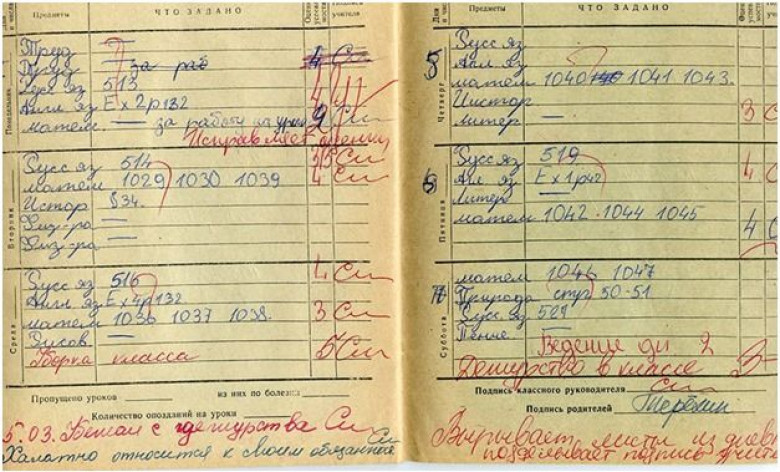 Дни и числа Предметы ЧТО ЗАДАНО Оцен. успев. Подпись учителя
Понедельник
Труд —
Труд — за раб 4
Русс яз 513 4
Англ яз Ex 2 p 132 4
матем. — за работу на уроке 2
Исправляет оценки
Вторник
Русс яз 514 3/5
матем 1029, 1030 1039 4
Истор § 34.
Физ-ра —
Физ-ра —
Среда
Русс яз 516 4
Англ. яз. Ex 4 p 132
матем 1036 1037 1038. 3
Рисов. —
Уборка класса 5
Пропущено уроков из них по болезни
Количество опозданий на уроки
5.03. Бежал с дежурства
Халатно относится к своим обязанност
Дни и числа Предметы ЧТО ЗАДАНО
Четверг
5
Русс яз
Англ яз
матем 1040 1041 1043.
Истор
Литер — 3
Пятница
6
Русс яз 519 4
Англ яз Ex 1 p 42
Литер —
матем 1042 · 1044 1045 4
Суббота
матем 1046 1047
Природа стр 50-51
Русс яз 521
Пение —
Ведение дн 2
Дежурство в классе 3
Подпись классного руководителя
Подпись родителей Терёхин
Вырывает листы из днев
подделывает подпись учите